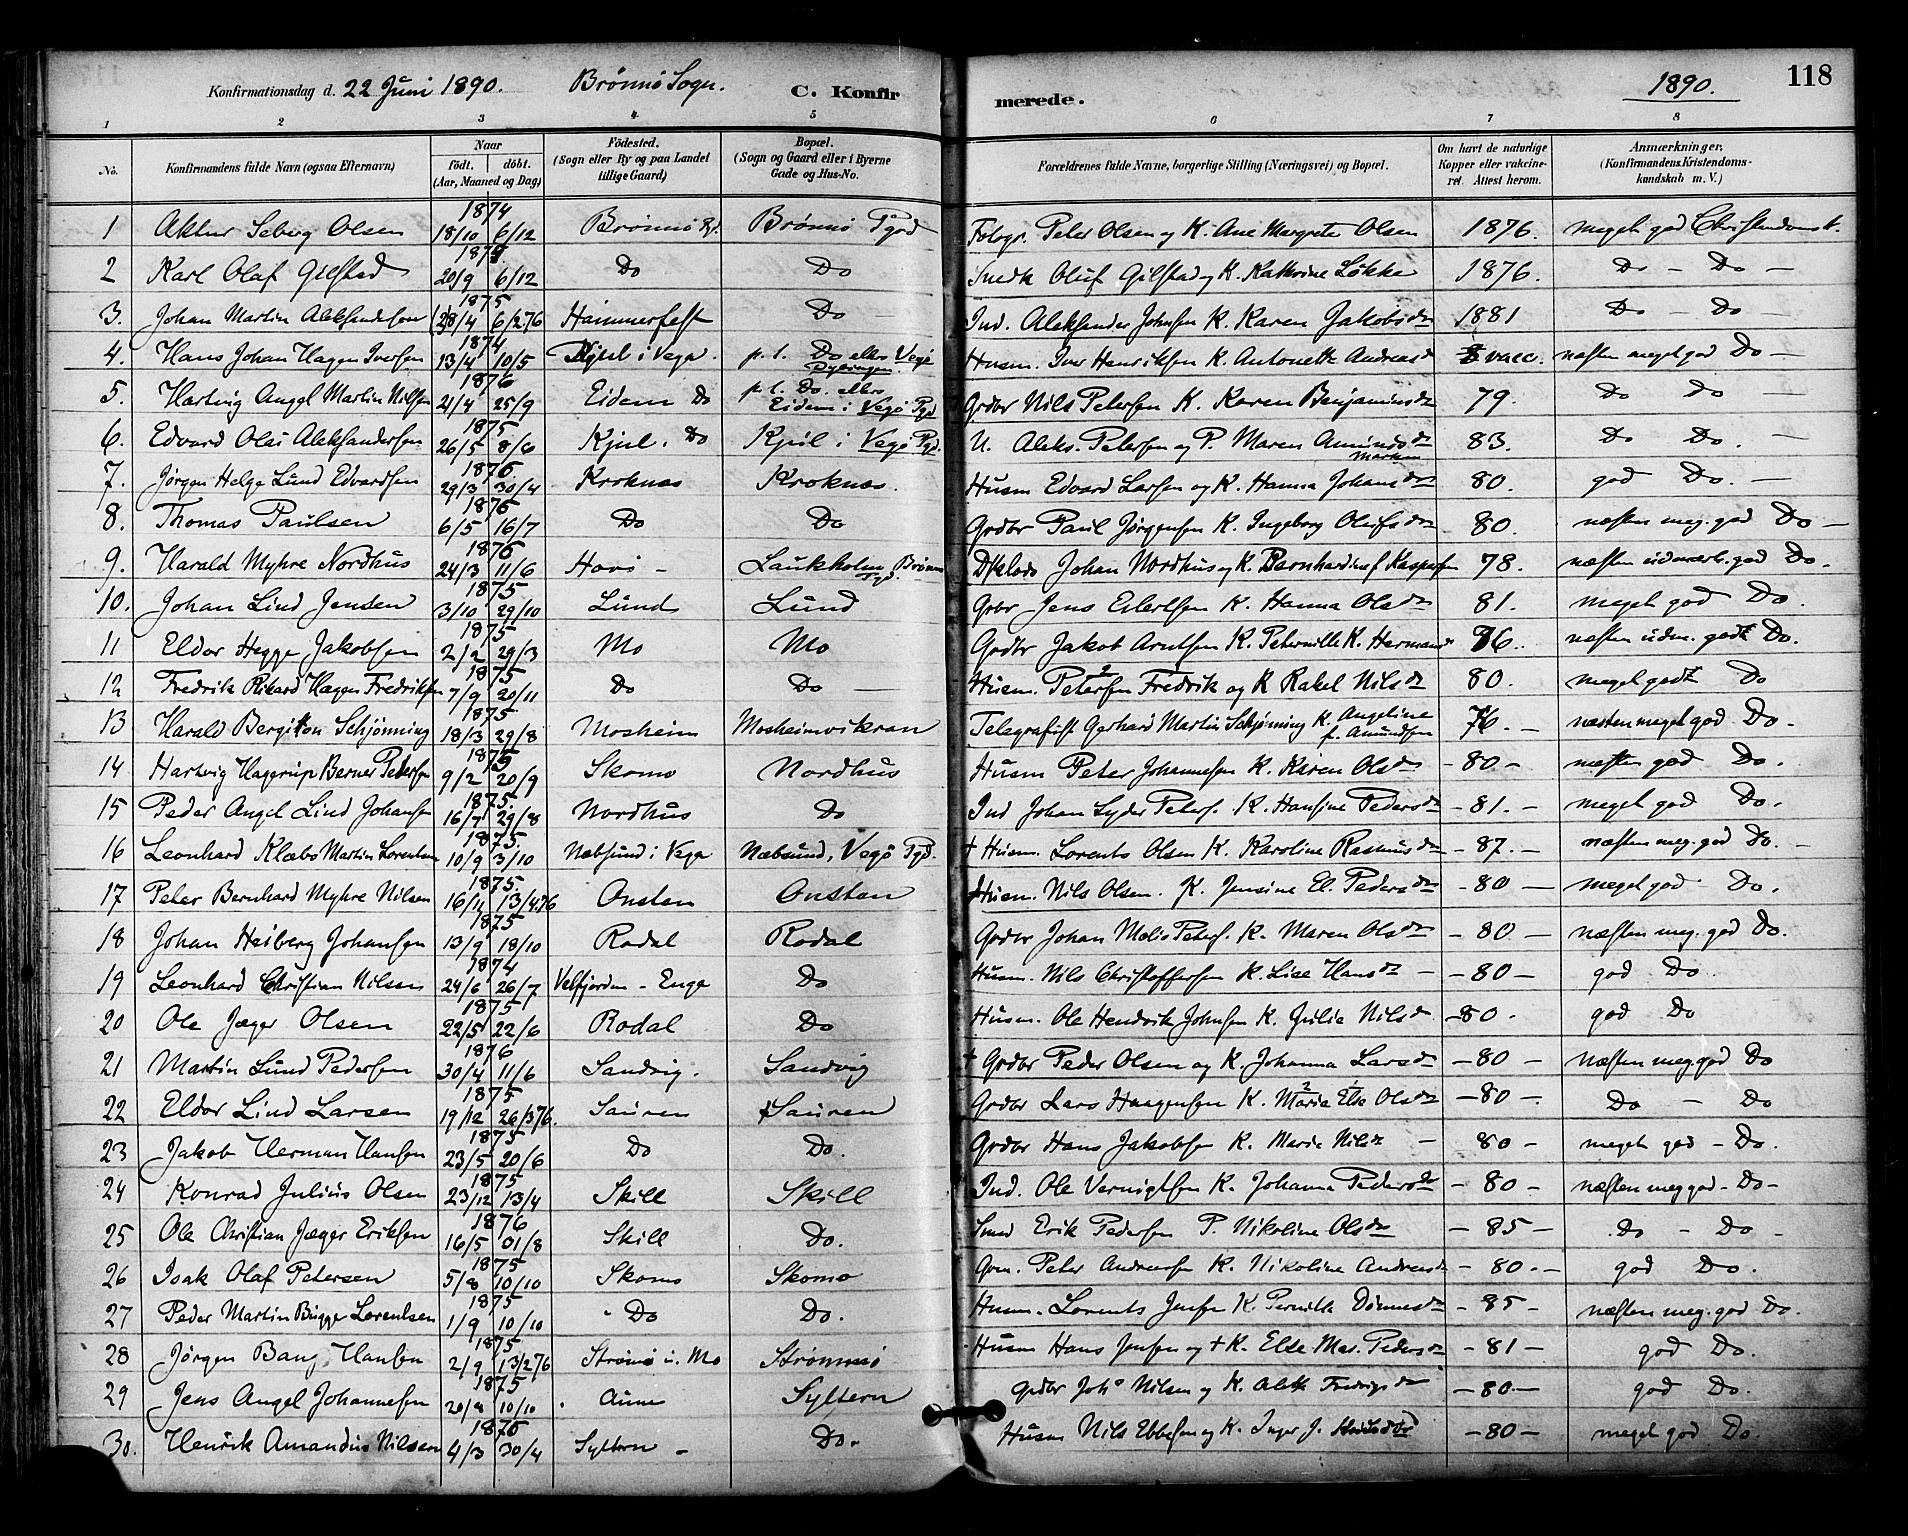 Konfirmationsdag d. 22 Juni 1890. Brönnö Sogn. C. Konfirmerede. 1890. 118
1 2 3 4 5 6 7 8
No. Konfirmandens fulde Navn (ogsaa Efternavn) Naar födt. döbt. (Aar, Maaned og Dag) Födested. (Sogn eller By og paa Landet tillige Gaard) Bopæl. (Sogn og Gaard eller i Byerne Gade og Hus-No. Forældrenes fulde Navne, borgerlige Stilling (Næringsvei) og Bopæl. Om havt de naturlige Kopper eller vakcineret. Attest herom. Anmærkninger. (Konfirmandens Kristendomskundskab m. V.)
1 Seberg Olsen 1874 18/10 6/12 Brönnö Brönnö Pgrd Fotogr. Peter Olsen og K. Ane Margrete Olsen 1876. meget god Christendomsk.
2 Karl Olaf Gilstad 20/9 6/12 Do Do Snedk Oluf Gilstad og K. Kathrine Løkke 1876. Do - Do -
3. Johan Martin Aleksandersen 1875 28/4 6/2 76 Hammerfest Do Ind. Aleksander Johnsen K. Karen Jakobsdr 1881 Do - Do -
4. Hans Johan Hagen Iversen 1874 13/4 10/5 Kjul i Vega. p. t. Do ellers Vegö Husm. Iver Henriksen K. Antonette Andreasdr vacc. næsten meget god Do -
5. Hartvig Angel Martin Nilsen 1876 21/4 25/9 Eidem Do p. t. Do ellers Eidem i Vegö Pgd Grdbr Nils Petersen K. Karen Benjaminsdr 79. Do Do -
6. Edvard Olai Aleksandersen 1875 26/5 8/6 Kjul. Do Kjöl i Vegö Pgd. U. Aleks. Petersen og P. Maren Amundsdr 83. Do Do. -
7. Jørgen Helge Lund Edvardsen 1876. 29/3 30/4 Kroknæs Kroknæs. Husm Edvard Larsen og K. Hanna Johansdr 80. god Do. -
8. Thomas Paulsen 6/5 16/7 Do Do Grdbr Paul Jørgensen K. Ingeborg Olufsdr 80. næsten meg. god Do -
9. Harald Myhre Nordhus 1876 24/3 11/6 Laukholm Brönnö Pgd. Johan Nordhus og K. Bernhardine f. Kaspersen 78. næsten udmærk. god Do.
10. Johan Lind Jensen 1875 3/10 29/10 Lund Lund Grbr Jens Eilertsen K. Hanna Olsdr 81. meget god Do.
11 Eldor Hegge Jakobsen 1875 2/2 29/3 Mo Mo Grdbr Jakob Arntsen K. Peternille K. Hermansd 76. næsten udm. godt Do.
12 Fredrik Rikard Hagen Fredriksen 1875 7/9 20/11 Do Do - Husm. Petersen Fredrik og K Rakel Nilsdr 80. meget godt Do
13 Harald Bergiton Schjønning 1875 18/3 29/8 Mosheim Mosheimvikran Telegrafist Gerhard Martin Schjønning K. Angeline f. Amundsen 76. - næsten meget god Do -
14 Hartvig Hagerup Berner Pedersen 1875 9/2 20/9 Skomo Nordhus Husm Peter Johannesen K. Karen Olsdr - 80 - næsten god Do.
15 Peder Angel Lind Johansen 1875. 16/7 29/8 Nordhus Do Ind Johan Lyder Peters. K. Hansine Pedersdr - 81. - meget god Do.
16 Leonhard Klæbo Martin Lorentsen 1875. 10/9 3/10 Næbsund i Vega Næbsund, Vegö Pgd. + Husm. Lorents Olsen K. Karoline Rasmusdr - 87. - næsten meg. god Do. -
17 Peter Bernhard Myhre Nilsen 1875 16/11 13/4.76 Onstan Onstan + Husm. Nils Olsen. K. Jensine El. Pedersdr - 80 - meget god Do.
18 Johan Heiberg Johansen 1875 13/9 18/10 Rodal Rodal Grdbr Johan Melis Peters. K. Maren Olsdr - 80 - næsten meg. god Do.
19 Leonhard Christian Nilsen 1874 24/6 26/7 Velfjorden - Enga Do Husm. Nils Christoffersen K. Lise Hansdr - - 80 - god Do
20 Ole Jæger Olsen 1875 22/5 22/6 Rodal Do Husm. Ole Hendrik Johnsen K. Julie Nilsdr - 80. god Do
21 Martin Lund Pedersen 1876 30/4 11/6 Sandvig. Sandvig + Grdbr Peder Olsen og K. Johanna Larsdr - 80 - næsten meg god Do
22 Eldor Lind Larsen 1875 19/12 26/3 76. Sauren Sauren Grdbr Lars Haagensen K. Maria Else Olsdr - 80 -. Do - Do
23 Jakob Herman Hansen 1875 23/5 20/6 Do Do. Grdbr Hans Jakobsen K. Marie Nilsdr - - 80 - meget god - Do.
24 Konrad Julius Olsen 1875 23/12 13/4 Skill Skill Ind. Ole Vernigtsen K. Johanna Pedersdr - 80 - næsten meg god - Do -
25 Ole Christian Jæger Eriksen 1876 16/5 01/8 Skill Do. Smed Erik Pedersen P. Nikoline Olsdr - 85 - Do - Do -
26 Isak Olaf Petersen 1875 5/8 10/10 Skomo Skomo Peter Andreasen K. Nikoline Andreasdr - 80. - god Do.
27 Peder Martin Bugge Lorentsen 1875 1/9 10/10 Do Do. Husm. Lorents Jensen K. Pernille - 85 - næsten meg. god Do.
28 Jørgen Bang Hansen 1875 2/9 13/2 76 Strömö u. Mo Strömsö Husm Hans Jensen og + K. Else Mar. Pedersdr - 81 - god Do.
29 Jens Angel Johannesen 1875 20/8 10/10 Aune Syltern Grdbr Johs Nilsen og K. Aleth Fredriksdr - 80 - god Do.
30. Henrik Amandus Nilsen 1876 4/3 30/4 Syltern - Do. Husm Nils Ebbesen og K. Inger J. - 80 - meget god Do.